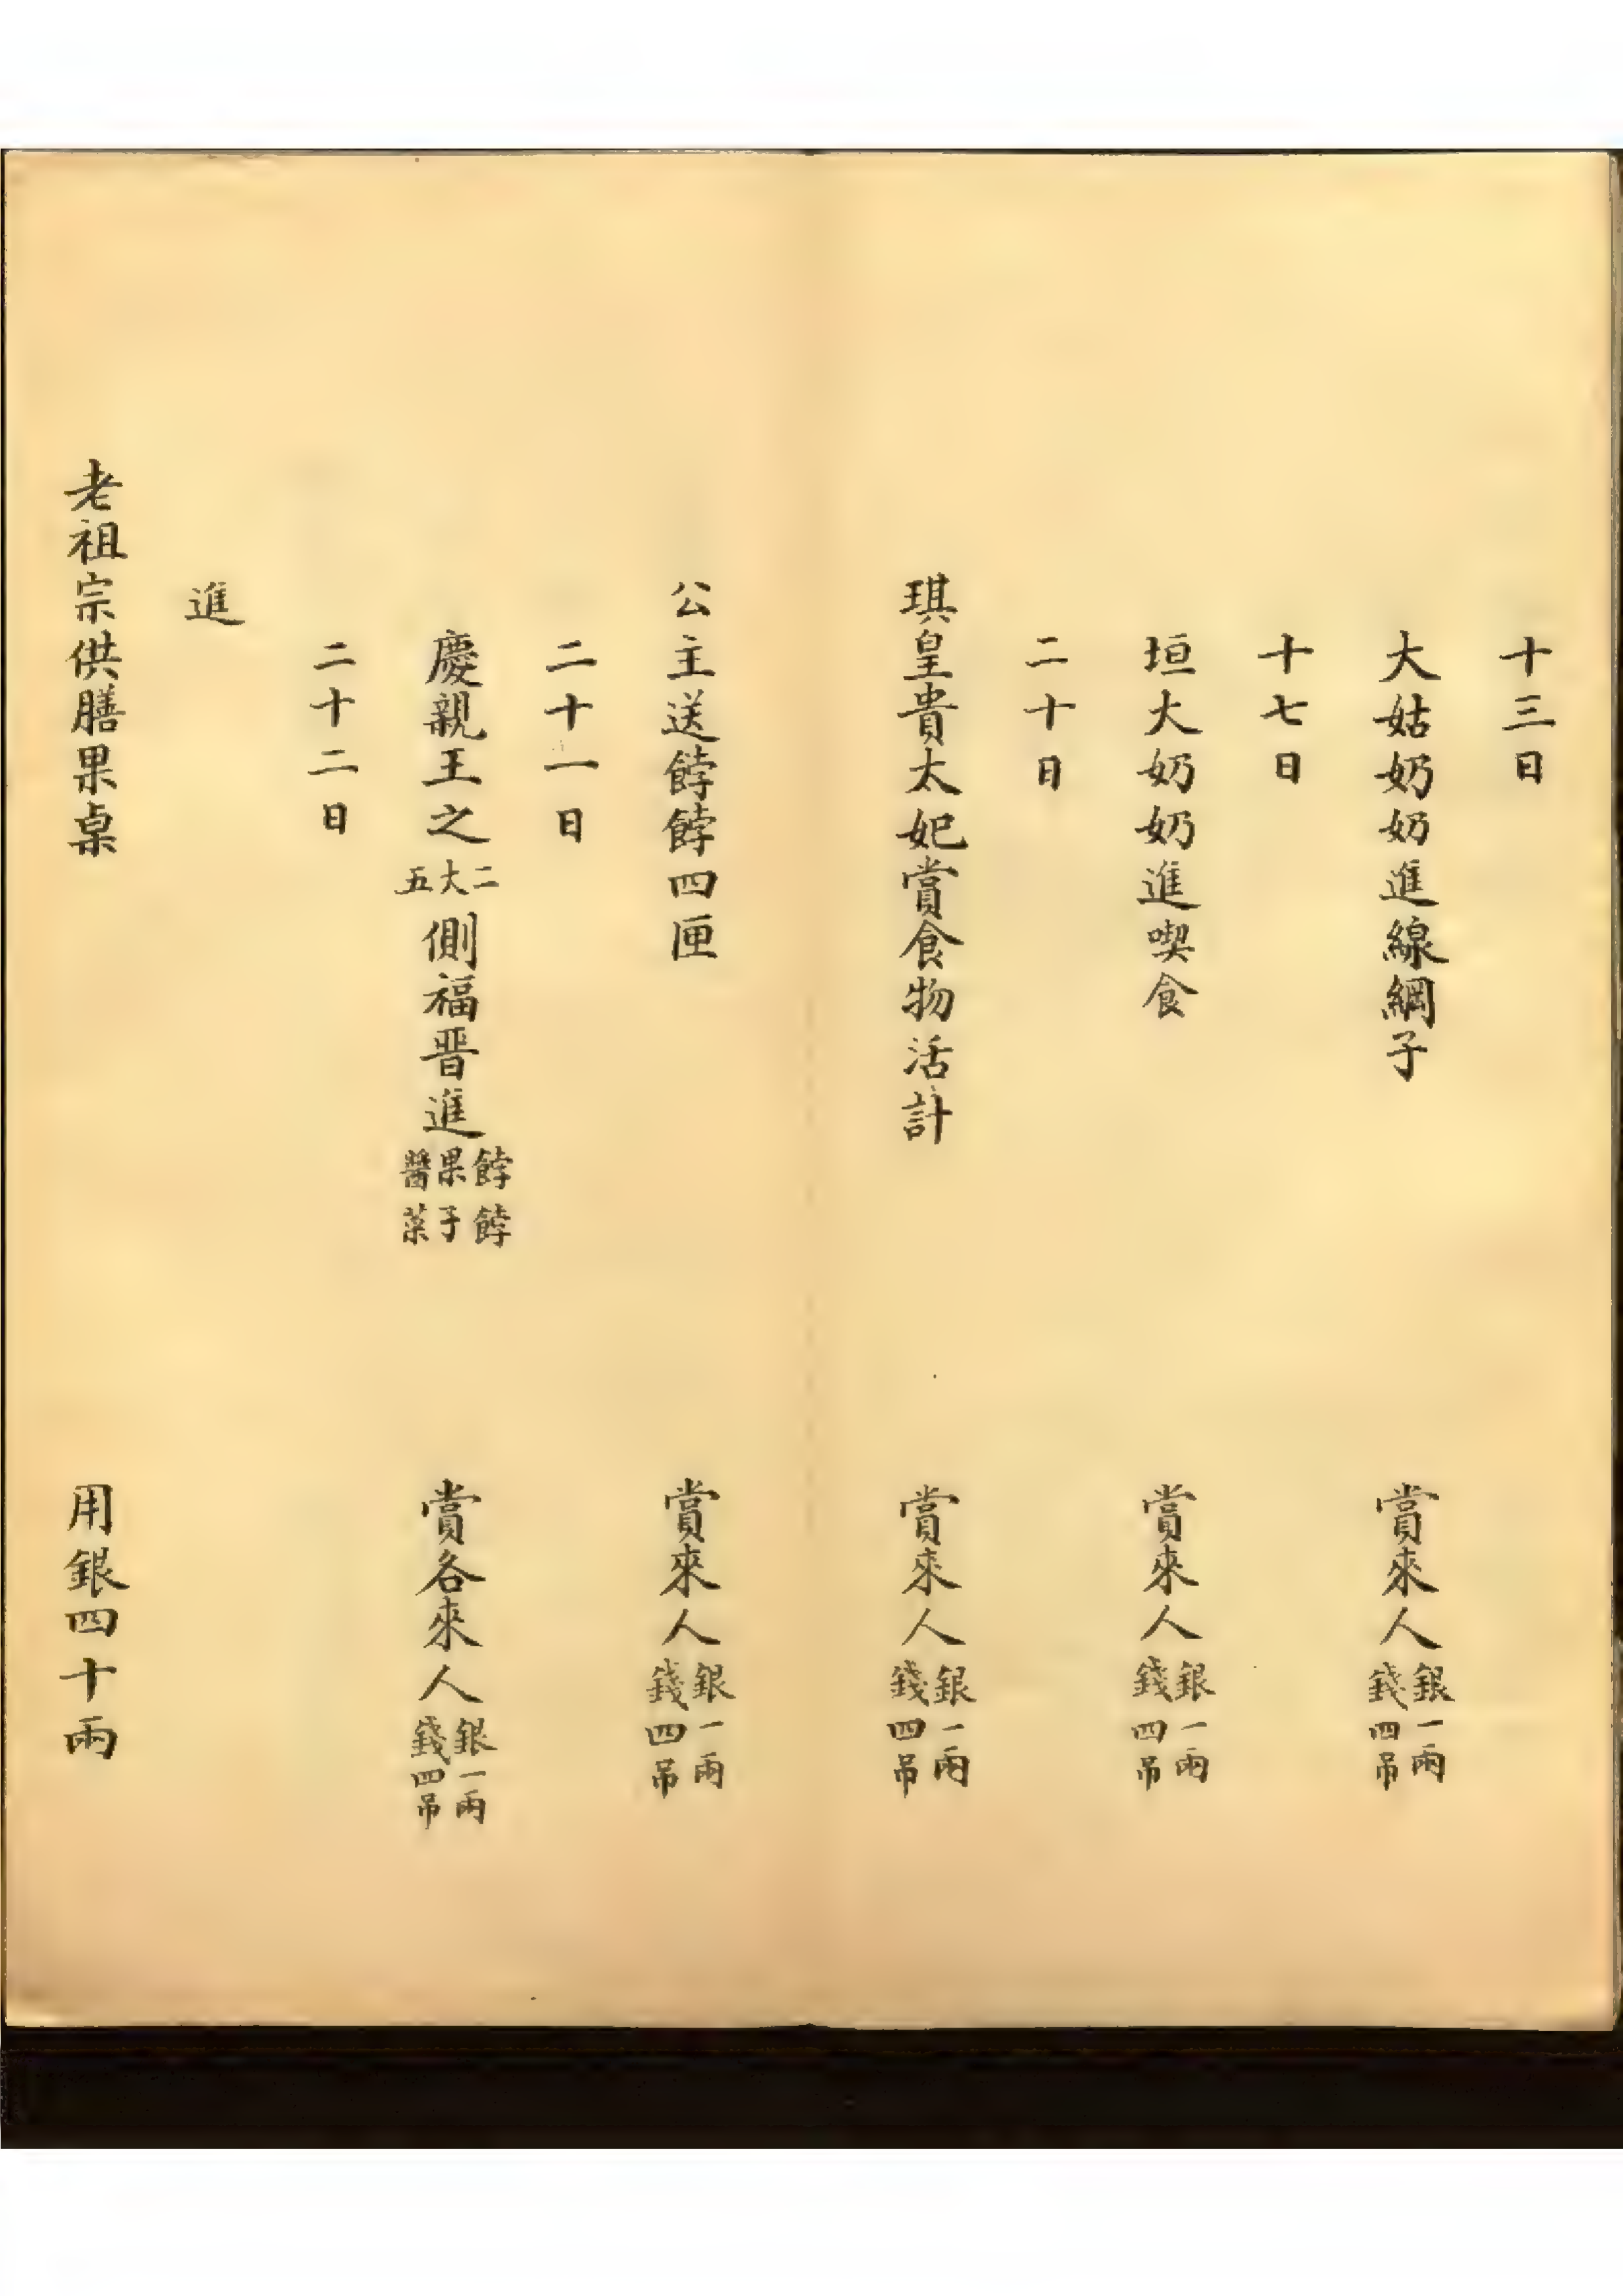 十三日
大姑奶奶進線網子 賞來人銀一兩錢四吊
十七日
垣大奶奶進喫食 賞來人銀一兩錢四吊
二十日
琪皇貴太妃賞食物活計 賞來人銀一兩錢四吊
公主送餑餑四匣 賞來人銀一兩錢四吊
二十一日
慶親王之二大五側福晋進餑餑果子醬菜 賞各來人銀一兩錢四吊
二十二日
進
老祖宗供膳果桌 用銀四十兩